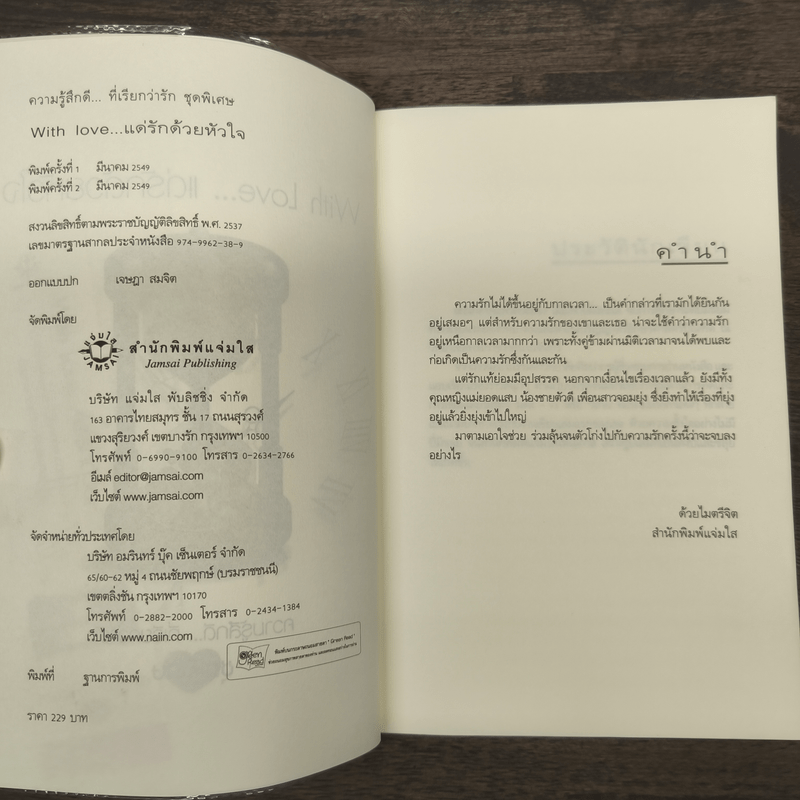 ความรู้สึกดี... ที่เรียกว่ารัก ชุดพิเศษ
With love...แด่รักด้วยหัวใจ
พิมพ์ครั้งที่ 1 มีนาคม 2549
พิมพ์ครั้งที่ 2 มีนาคม 2549
สงวนลิขสิทธิ์ตามพระราชบัญญัติลิขสิทธิ์ พ.ศ. 2537
เลขมาตรฐานสากลประจำหนังสือ 974-9962-38-9
ออกแบบปก เจษฎา สมจิต
จัดพิมพ์โดย
สำนักพิมพ์แจ่มใส
Jamsai Publishing
บริษัท แจ่มใส พับลิชชิ่ง จำกัด
163 อาคารไทยสมุทร ชั้น 17 ถนนสุรวงศ์
แขวงสุริยวงศ์ เขตบางรัก กรุงเทพฯ 10500
โทรศัพท์ 0-6990-9100 โทรสาร 0-2634-2766
อีเมล์ editor@jamsai.com
เว็บไซต์ www.jamsai.com
จัดจำหน่ายทั่วประเทศโดย
บริษัท อมรินทร์ บุ๊ค เซ็นเตอร์ จำกัด
65/60-62 หมู่ 4 ถนนชัยพฤกษ์ (บรมราชชนนี)
เขตตลิ่งชัน กรุงเทพฯ 10170
โทรศัพท์ 0-2882-2000 โทรสาร 0-2434-1384
เว็บไซต์ www.naiin.com
พิมพ์ที่ ฐานการพิมพ์
ราคา 229 บาท
คำนำ
ความรักไม่ได้ขึ้นอยู่กับกาลเวลา... เป็นคำกล่าวที่เรามักได้ยินกัน
อยู่เสมอๆ แต่สำหรับความรักของเขาและเธอ น่าจะใช้คำว่าความรัก
อยู่เหนือกาลเวลามากกว่า เพราะทั้งคู่ข้ามผ่านมิติเวลามาจนได้พบและ
ก่อเกิดเป็นความรักซึ่งกันและกัน
แต่รักแท้ย่อมมีอุปสรรค นอกจากเงื่อนไขเรื่องเวลาแล้ว ยังมีทั้ง
คุณหญิงแม่ยอดแสบ น้องชายตัวดี เพื่อนสาวจอมยุ่ง ซึ่งยิ่งทำให้เรื่องที่ยุ่ง
อยู่แล้วยิ่งยุ่งเข้าไปใหญ่
มาตามเอาใจช่วย ร่วมลุ้นจนตัวโก่งไปกับความรักครั้งนี้ว่าจะจบลง
อย่างไร
ด้วยไมตรีจิต
สำนักพิมพ์แจ่มใส